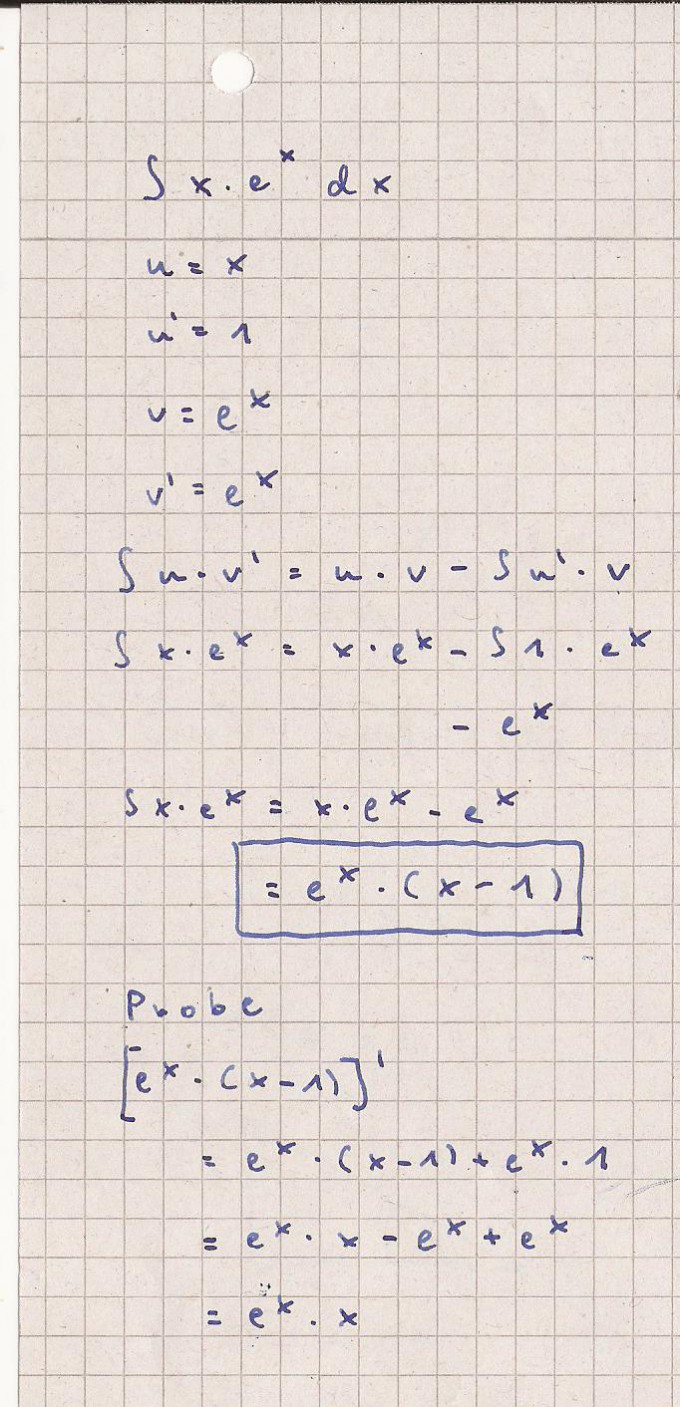 ∫ x · e^x dx
u = x
u' = 1
v = e^x
v' = e^x
∫ u · v' = u · v - ∫ u' · v
∫ x · e^x = x · e^x - ∫ 1 · e^x
- e^x
∫ x · e^x = x · e^x - e^x
= e^x · (x - 1)
Probe
[e^x · (x - 1)]'
= e^x · (x - 1) + e^x · 1
= e^x · x - e^x + e^x
= e^x · x